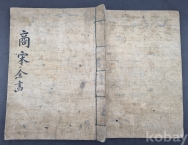 商宋全書
kobay